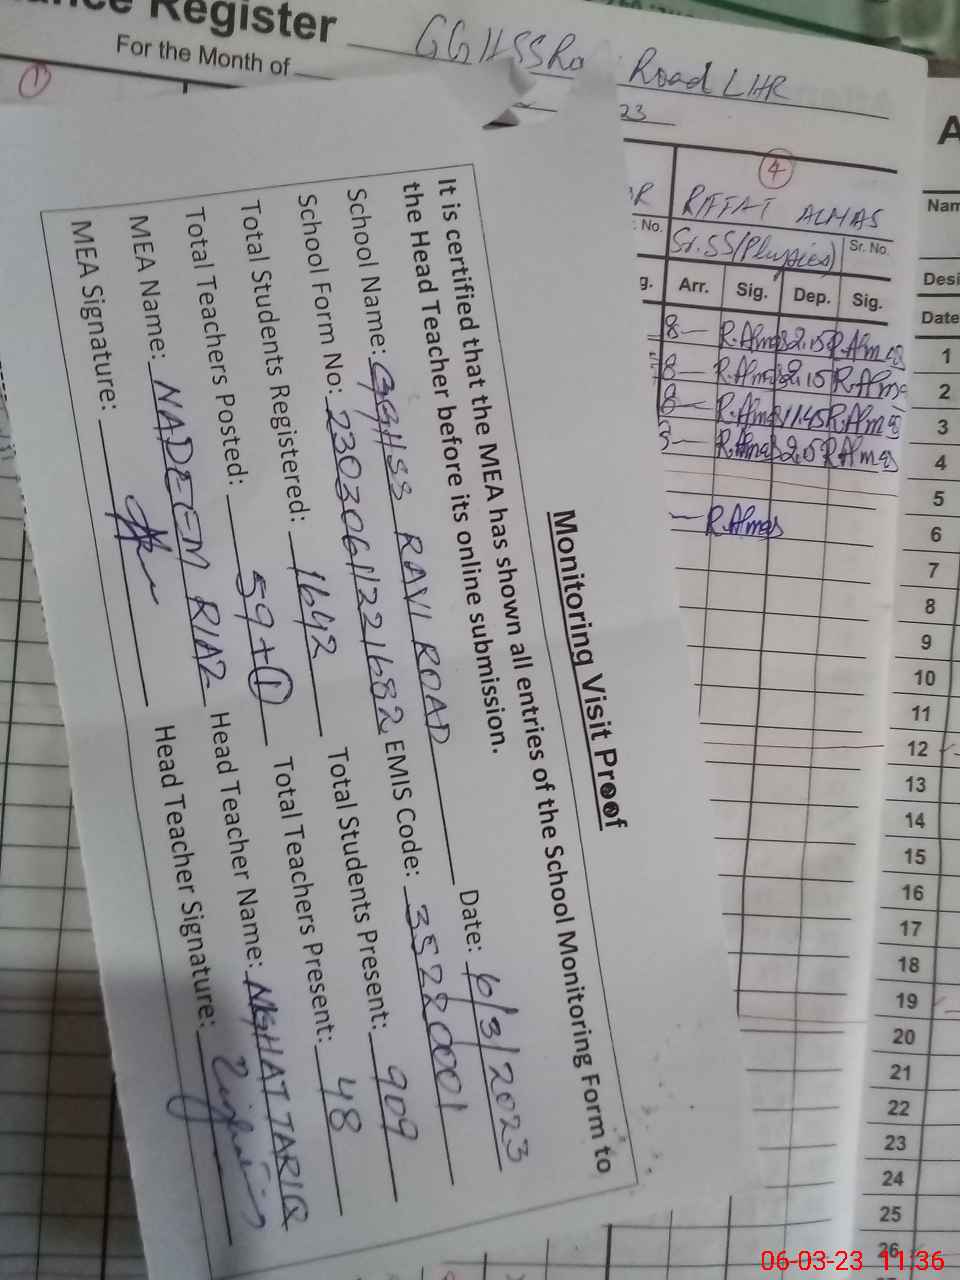 Register
For the Month of
GGHSS Ra Road LHR
23
1
4
RIFFAT ALMAS
No.
Sr.SS(Physics)
Sr. No.
g. Arr. Sig. Dep. Sig.
8— R.Almas 2.15 R.Almas
8— R.Almas 2.15 R.Almas
8— R.Almas 11.45 R.Almas
8— R.Almas 2.15 R.Almas
— R.Almas
A
Nam
Desi
Date
1
2
3
4
5
6
7
8
9
10
11
12
13
14
15
16
17
18
19
20
21
22
23
24
25
26
Monitoring Visit Proof
It is certified that the MEA has shown all entries of the School Monitoring Form to
the Head Teacher before its online submission.
School Name: GGHSS RAVI ROAD Date: 6/3/2023
School Form No: 23030611221682 EMIS Code: 35220001
Total Students Registered: 1642 Total Students Present: 909
Total Teachers Posted: 59+1 Total Teachers Present: 48
MEA Name: NADEEM RIAZ Head Teacher Name: NIGHAT TARIQ
MEA Signature: Head Teacher Signature:
06-03-23 11:36